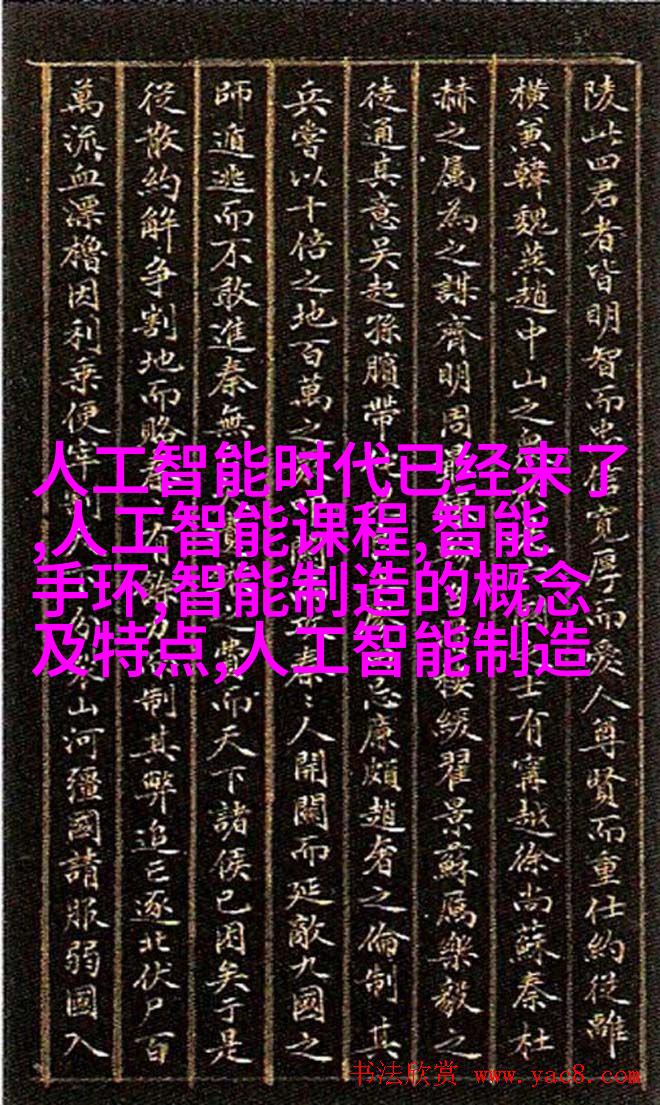 陵此四君者皆明智而忠信寬厚而愛人尊賢而重仕約從離
橫蒹韓魏燕趙中山之士有甯越徐尚蘇秦杜
赫之屬為之謀齊明周樓緩翟景蘇厲樂毅之
徒通其意吳起孫臏帶忌廉頗趙奢之倫制其
兵嘗以十倍之地百萬之秦〻人開關而延敵九國之
師遁逃而不敢進秦無而天下諸侯已困矣于是
從散約解爭割地而賂有制其弊追亡逐北伏尸百
萬流血漂櫓因利乘便山河疆國請服弱國入
人工智能时代已经来了
,人工智能课程,智能
手环,智能制造的概念
及特点,人工智能制造
书法欣赏 www.yac8.com